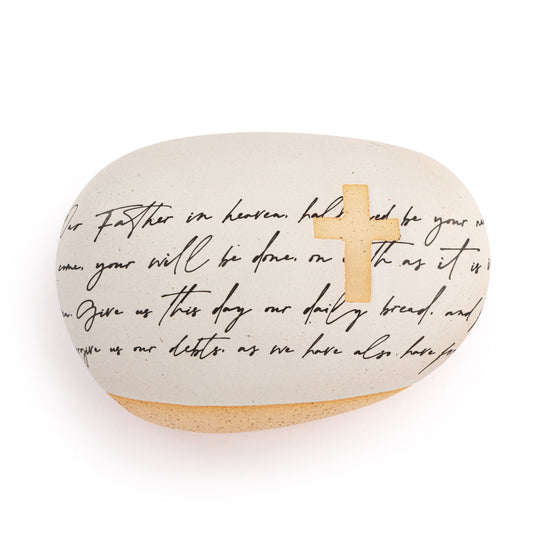 Our Father in heaven, hallowed be your
come, your will be done, on earth as it is
Give us this day our daily bread, and
forgive us our debts, as we have also have